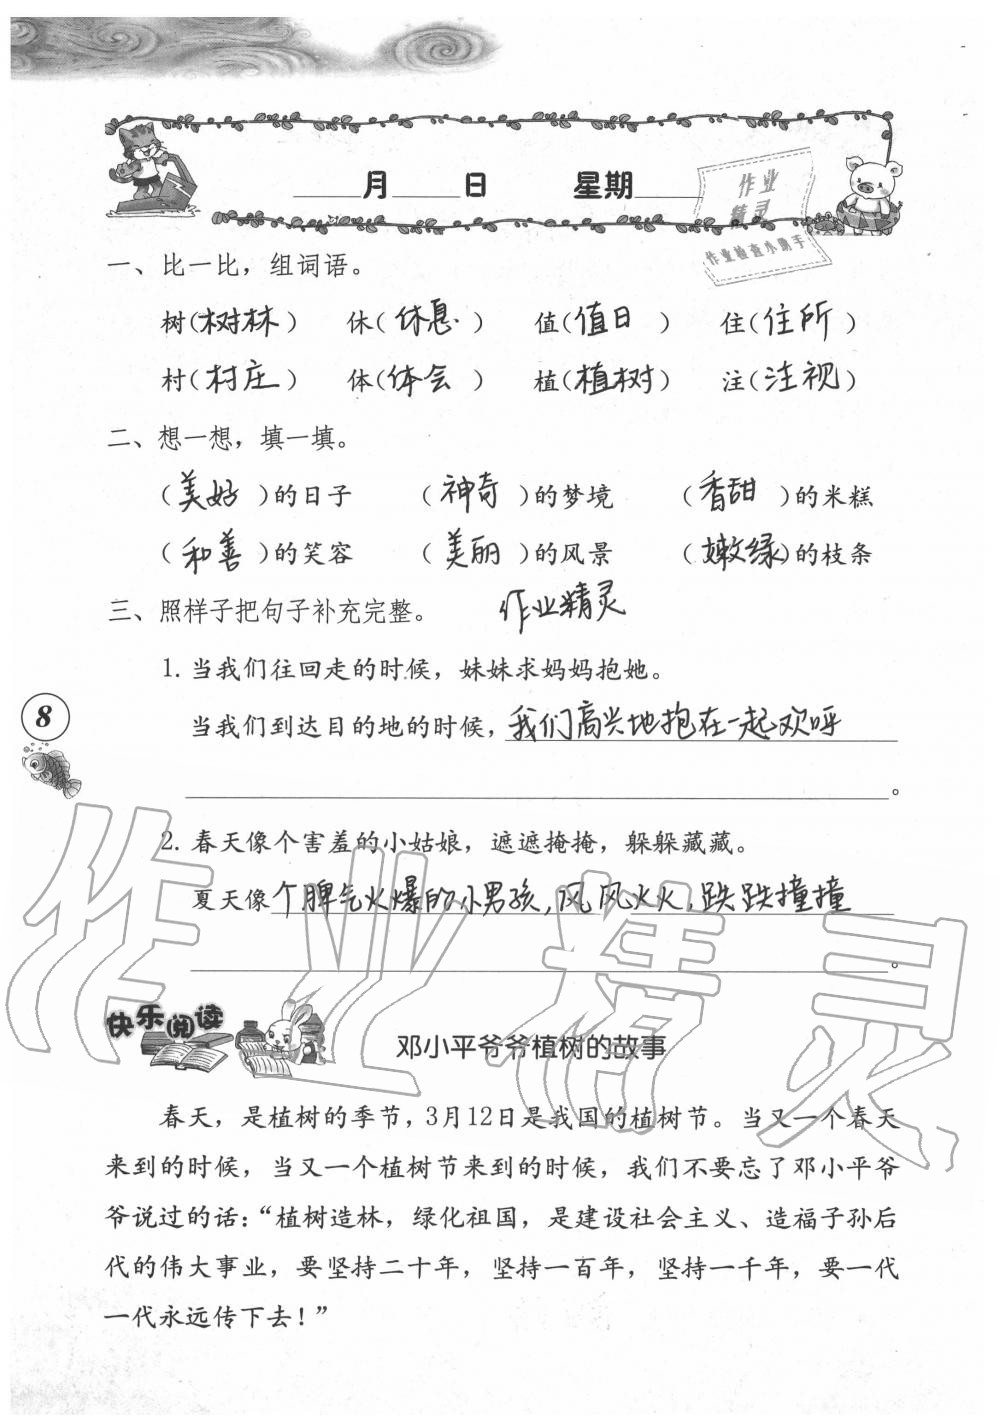 ____月____日 星期____
作业
精灵
作业检查小帮手
一、比一比，组词语。
树(树林) 休(休息) 值(值日) 住(住所)
村(村庄) 体(体会) 植(植树) 注(注视)
二、想一想，填一填。
(美好)的日子 (神奇)的梦境 (香甜)的米糕
(和善)的笑容 (美丽)的风景 (嫩绿)的枝条
三、照样子把句子补充完整。 作业精灵
1. 当我们往回走的时候，妹妹求妈妈抱她。
8
当我们到达目的地的时候，我们高兴地抱在一起欢呼
。
2. 春天像个害羞的小姑娘，遮遮掩掩，躲躲藏藏。
夏天像个脾气火爆的小男孩，风风火火，跌跌撞撞
。
作业精灵
快乐阅读
邓小平爷爷植树的故事
春天，是植树的季节，3月12日是我国的植树节。当又一个春天
来到的时候，当又一个植树节来到的时候，我们不要忘了邓小平爷
爷说过的话：“植树造林，绿化祖国，是建设社会主义、造福子孙后
代的伟大事业，要坚持二十年，坚持一百年，坚持一千年，要一代
一代永远传下去！”